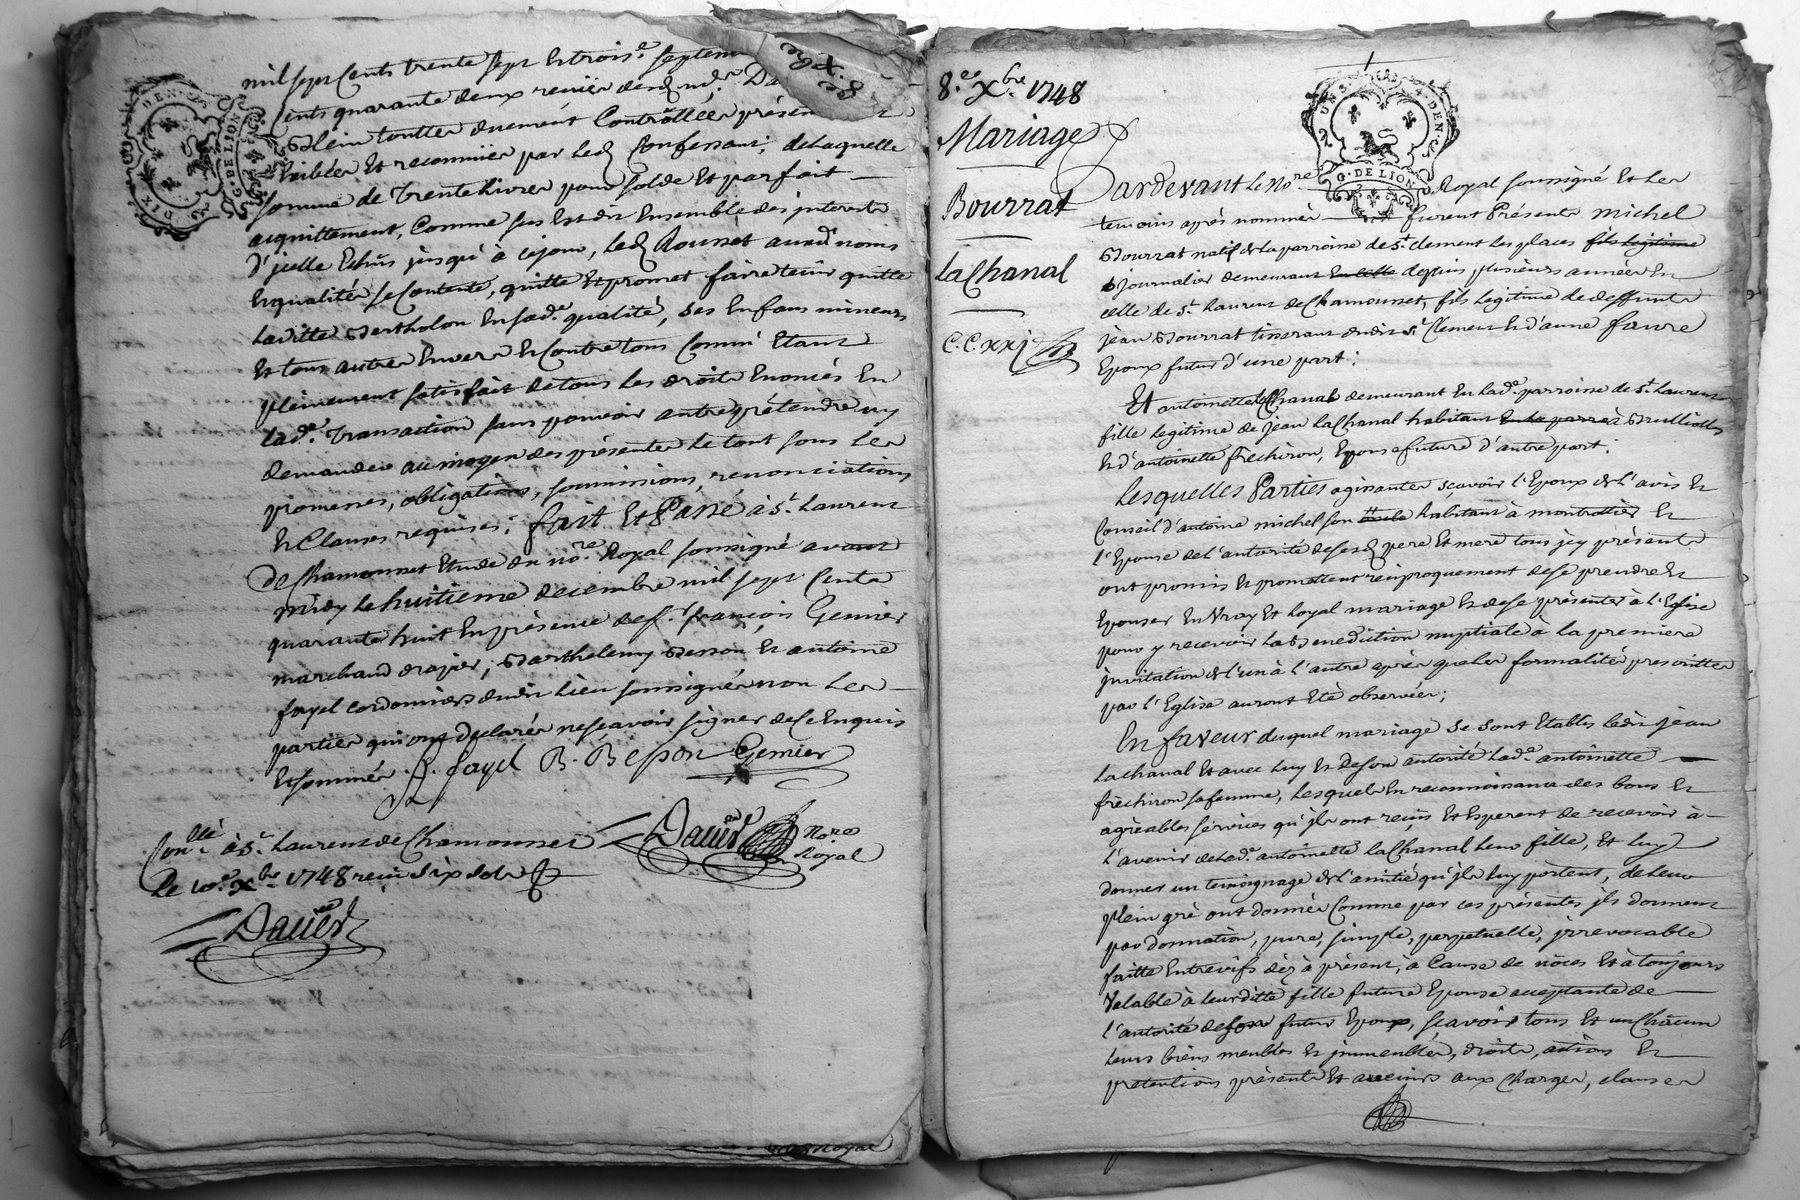 mil sept cents trente sept et trois.e septem
cents quarante deux
plein touttes duement Controllées présen
exibées Et reconnües par led. Confessant; de laquelle
somme de trente livres pour solde Et parfait
acquittement, Comme sus Est dit Ensemble des interests
d'jcelle Echûs jusqu'à ce jour, led. Rousset auxd. noms
Et qualités se Contente, quitte Et promet faire tenir quitte
laditte Bertholon En sad.e qualité, ses Enfans mineurs
Et tous autres Envers Et Contre tous Comm' Etant
pleinement satisfait de tous les droits Enoncés En
lad.e transaction sans pouvoir autre prétendre ny
demander au moyen des présentes le tout sous les
promesses, obligations, soumissions, renonciations
Et Clauses requises; fait Et Passé à S.t Laurent
de Chamousset Etude du No.re Royal soussigné avant
midy le huitieme decembre mil sept Cents
quarante huit En présence de s.r françois Gemier
marchand drapier, Barthelemy Besson Et antoine
fayel cordonniers dudit lieu soussignés non les
parties qui ont declarés ne sçavoir signer de ce Enquis
Et sommés. A. fayel B. Besson Gemier
Con.llé à S.t Laurent de Chamousset
Daüer No.re Royal
le 10.e X.bre 1748 reçu six sols
Daüer
DIX DEN.
G. DE LION
8.e X.bre 1748
Mariage
Bourrat
LaChanal
C.C. xxj
2 DEN.
G. DE LION
Pardevant le No.re Royal soussigné Et les
temoins après nommés furent Présents michel
Bourrat natif de la parroisse de S.t clement les places fils legitime
journalier demeurant En celle depuis plusieurs années En
celle de S.t Laurent de Chamousset, fils legitime de deffunts
jean Bourrat tisserant dudit S.t Clement Et d'anne favre
Epoux futur d'une part;
Et antoinette LaChanal demeurant En lad.e parroisse de S.t Laurent
fille legitime de jean LaChanal habitant En la parre à Brulliolles
Et d'antoinette frèchiron, Epouse future d'autre part;
Lesquelles Parties agissantes sçavoir l'Epoux de l'avis Et
Conseil d'antoine michel son oncle habitant à montrottier Et
l'Epouse de l'autorité de sesd. pere Et mere tous jcy présents
ont promis Et promettent reciproquement de se prendre Et
Epouser En Vray Et Loyal mariage Et de se présenter à l'Eglise
pour y recevoir la Benediction nuptiale à la premiere
jnvitation de l'un à l'autre après que les formalités prescrittes
par l'Eglise auront Eté observées;
En faveur duquel mariage se sont Etablis ledit jean
Lachanal Et avec luy Et de son autorité lad.e antoinette
frèchiron sa femme, lesquels En reconnoissance des bons Et
agréables services qu'jls ont reçûs Et Esperent de recevoir à
l'avenir de lad.e antoinette laChanal leur fille, Et luy
donner un temoignage de l'amitié qu'jls luy portent, de leur
plein gré ont donnés Comme par ces présentes jls donnent
par donnation, pure, simple, perpetuelle, jrrevocable
faitte Entrevifs déz à présent, à Cause de nôces Et à toujours
Valable à leurditte fille future Epouse acceptante de
l'autorité de son futur Epoux, sçavoir tous Et un Chacun
leurs biens meubles Et jmmeubles, droits, actions Et
pretentions présents Et avenirs aux Charges, clauses